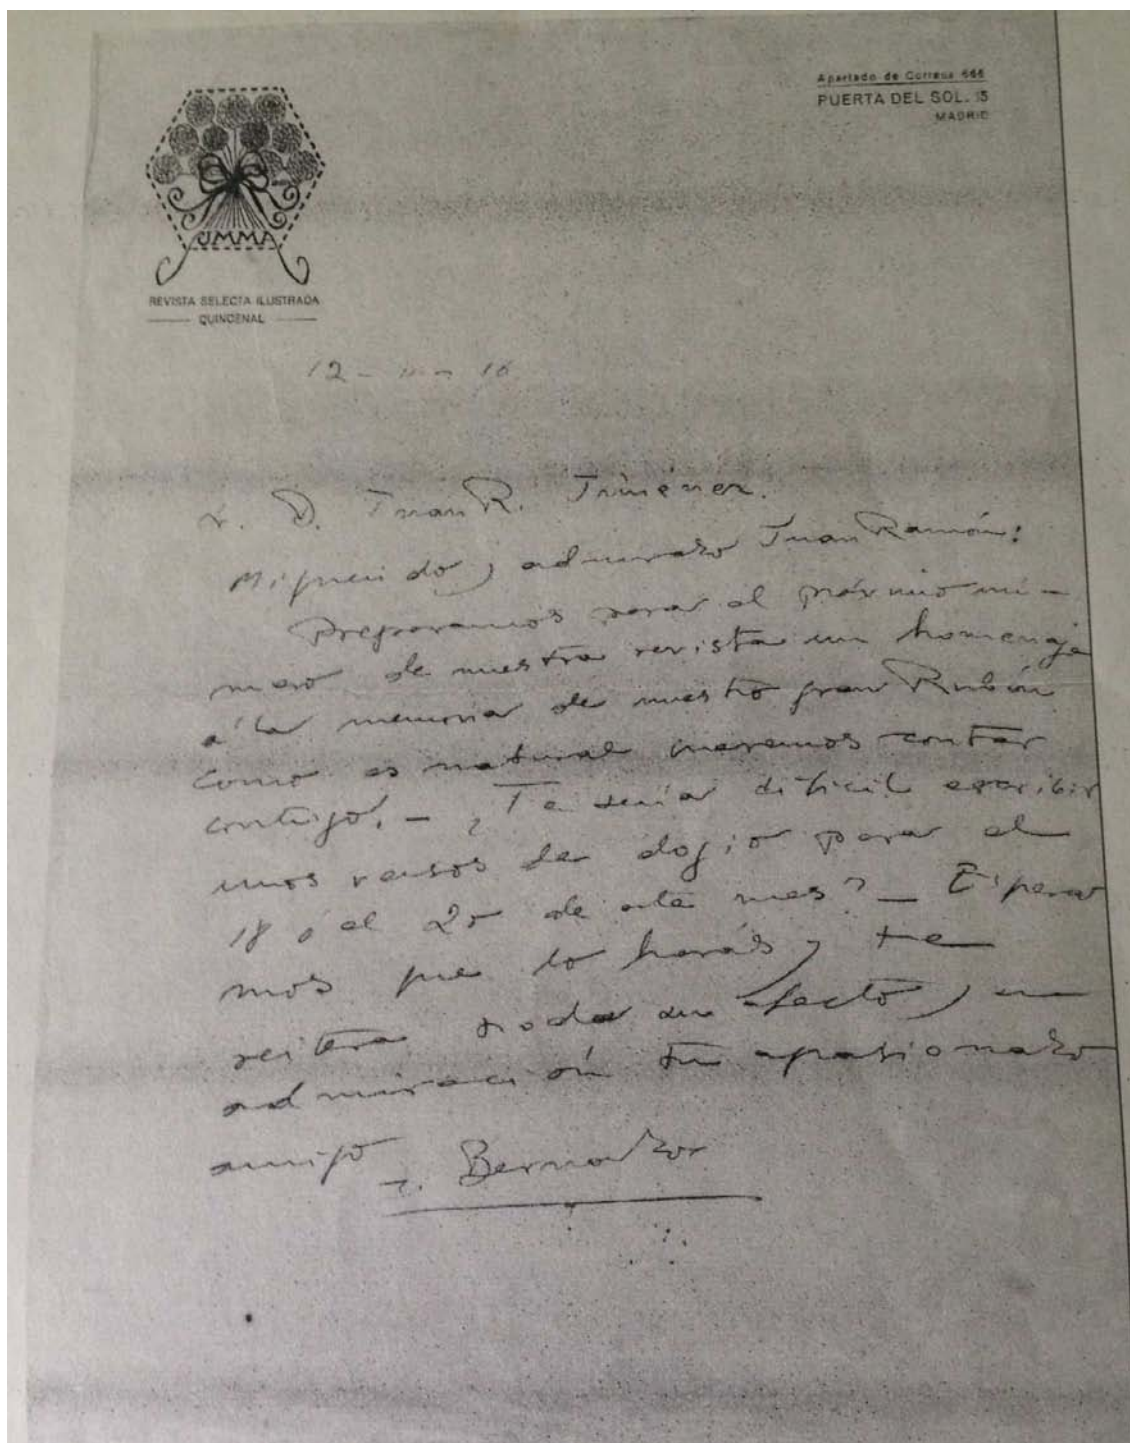 Apartado de Correos 666
PUERTA DEL SOL. 13
MADRID
UMMA
REVISTA SELECTA ILUSTRADA
QUINCENAL
12 - 16
D. Juan R. Jiménez.
Mi querido y admirado Juan Ramón:
Preparamos para el próximo nú-
mero de nuestra revista un homenaje
a la memoria de nuestro gran Rubén
como es natural queremos contar
contigo. - ¿Te sería difícil escribir
unos versos de elogio para el
18 ó el 20 de este mes? - Espera
mos que lo harás y te
reitera todo su afecto y su
admiración tu apasionado
amigo